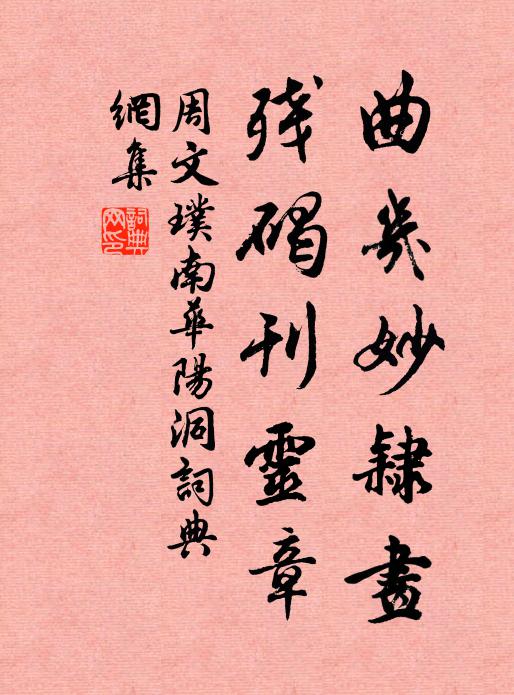 曲幾妙隸畫
殘碣刊靈章
周文璞南華陽洞詞典
網集
詞典
网印